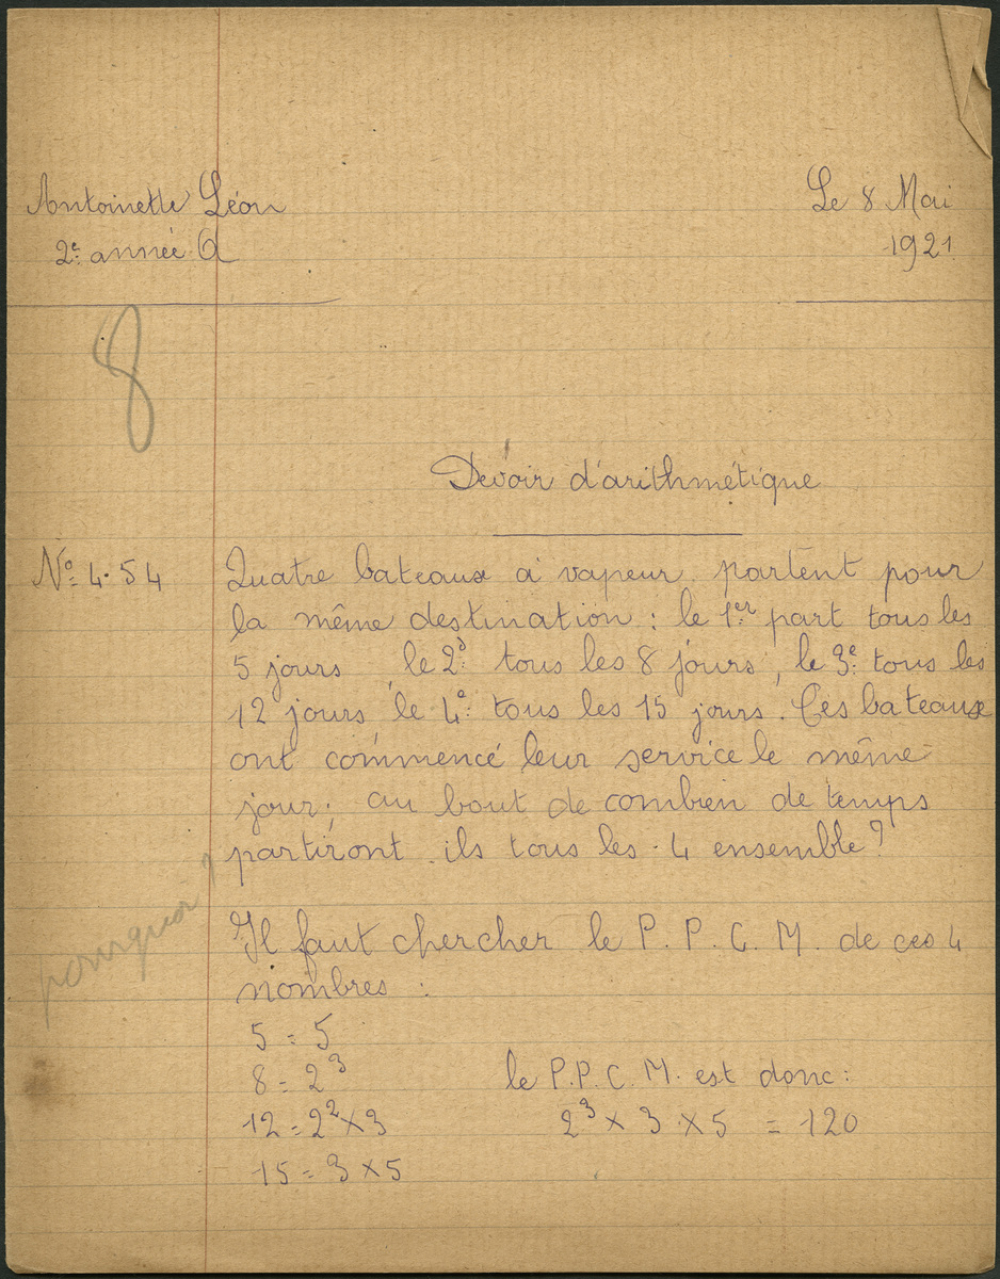 Antoinette Léon
Le 8 Mai
2e année A
1921
8
Devoir d'arithmétique
No 4.54
Quatre bateaux à vapeur partent pour
la même destination : le 1er part tous les
5 jours, le 2d tous les 8 jours, le 3e tous les
12 jours, le 4e tous les 15 jours. Ces bateaux
ont commencé leur service le même
jour; au bout de combien de temps
partiront-ils tous les 4 ensemble?
pourquoi?
Il faut chercher le P. P. C. M. de ces 4
nombres :
5 = 5
8 = 2³
le P.P.C.M. est donc:
12 = 2² × 3
2³ × 3 × 5 = 120
15 = 3 × 5